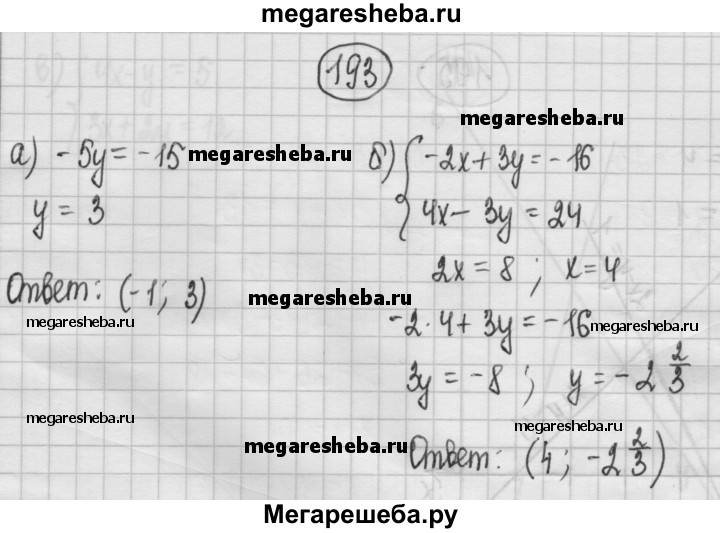 megaresheba.ru
193
megaresheba.ru
а) - 5y = - 15 megaresheba.ru
y = 3
Ответ: (-1; 3)
megaresheba.ru
megaresheba.ru
б) { -2x + 3y = - 16
4x - 3y = 24
2x = 8 ; x = 4
megaresheba.ru
-2·4 + 3y = - 16 megaresheba.ru
3y = - 8 ; y = - 2 2/3
megaresheba.ru
megaresheba.ru
megaresheba.ru
Ответ: (4 ; -2 2/3)
Мегарешеба.ру